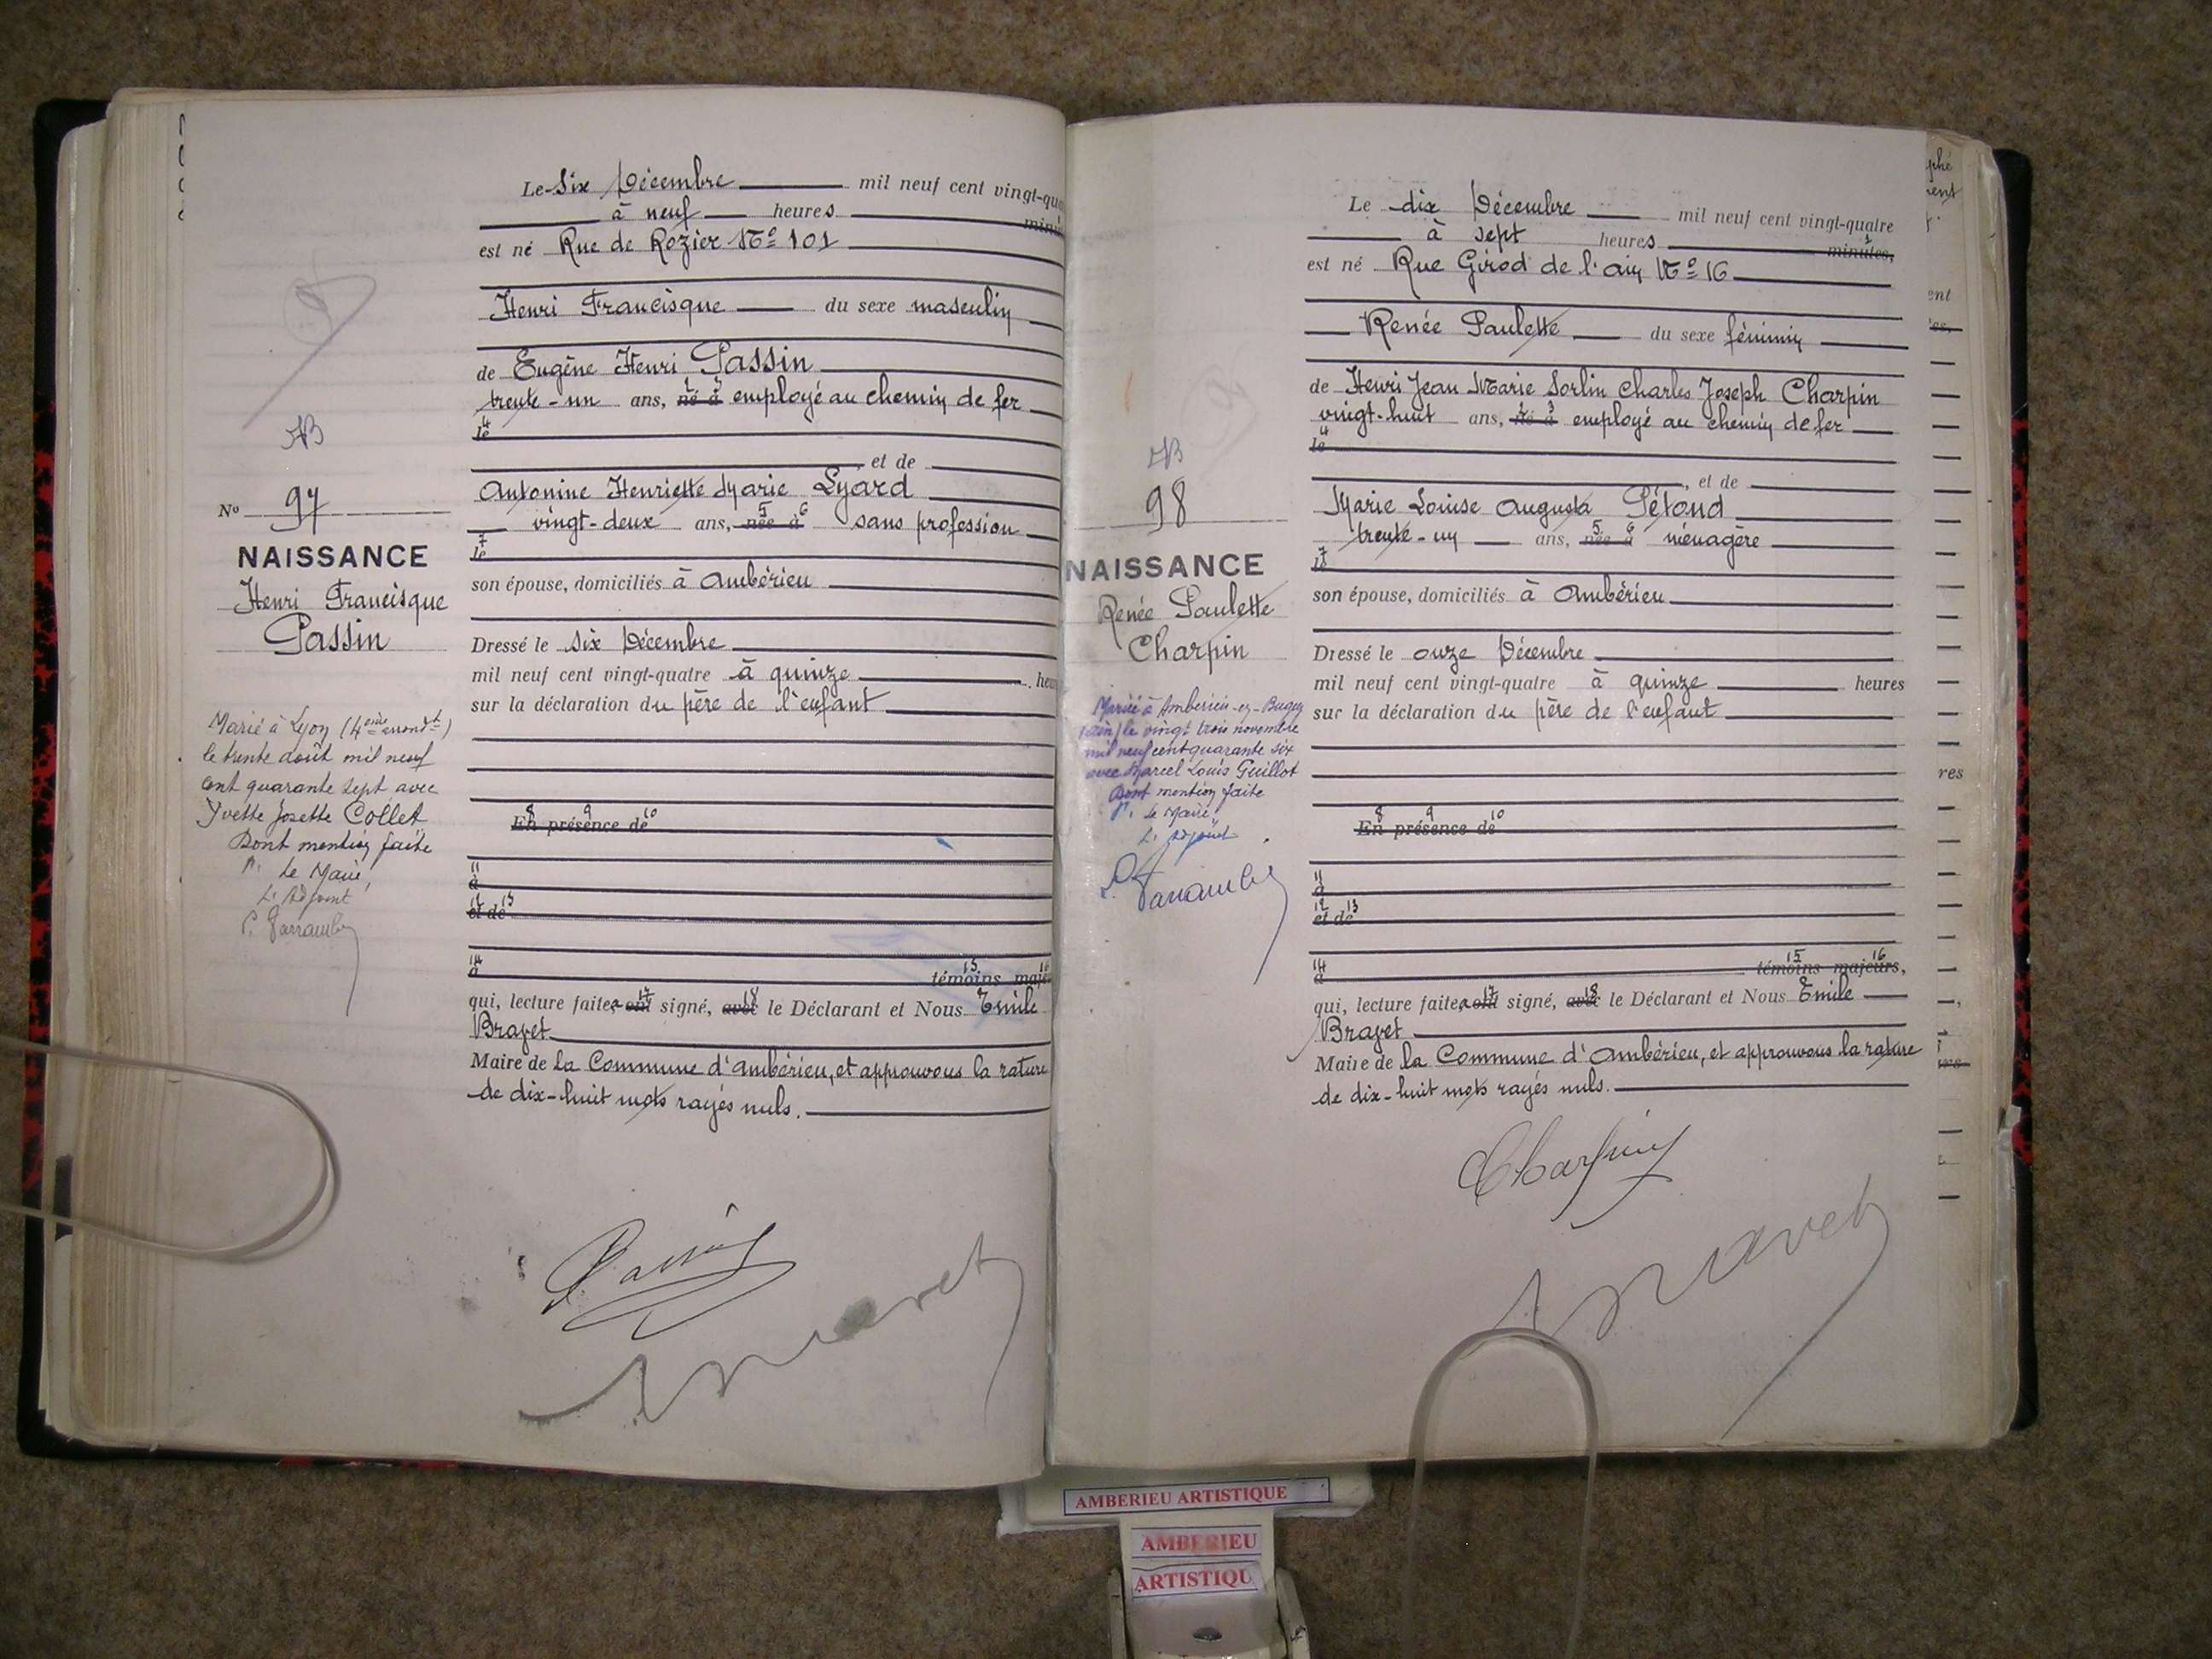 Le six Décembre mil neuf cent vingt-qua
à neuf heures minu
est né Rue de Rozier No 101
Henri Francisque du sexe masculin
de Eugène Henri Passin
trente-un ans, né à employé au chemin de fer
le
et de
Antonine Henriette Marie Lyard
vingt-deux ans, née à sans profession
le
son épouse, domiciliés à Ambérieu
Dressé le six Décembre
mil neuf cent vingt-quatre à quinze heu
sur la déclaration du père de l'enfant
En présence de
à
et de
à témoins maje
qui, lecture faite, a ont signé, avec le Déclarant et Nous Emile
Bravet
Maire de la Commune d'Ambérieu, et approuvons la rature
de dix-huit mots rayés nuls.
Nº 97
NAISSANCE
Henri Francisque
Passin
Marié à Lyon (4ème arrondt)
le trente août mil neuf
cent quarante sept avec
Yvette Josette Collet
Dont mention faite
Pr le Maire,
L'Adjoint
Passin
Bravet
Le dix Décembre mil neuf cent vingt-quatre
à sept heures minutes,
est né Rue Girod de l'ain No 16
Renée Paulette du sexe féminin
de Henri Jean Marie Sorlin Charles Joseph Charpin
vingt-huit ans, né à employé au chemin de fer
le
, et de
Marie Louise Augusta Pétond
trente-un ans, née à ménagère
le
son épouse, domiciliés à Ambérieu
Dressé le onze Décembre
mil neuf cent vingt-quatre à quinze heures
sur la déclaration du père de l'enfant
En présence de
à
et de
à témoins majeurs,
qui, lecture faite, a ont signé, avec le Déclarant et Nous Emile
Bravet
Maire de la Commune d'Ambérieu, et approuvons la rature
de dix-huit mots rayés nuls.
98
NAISSANCE
Renée Paulette
Charpin
Mariée à Ambérieu-en-Bugey
(Ain) le vingt trois novembre
mil neuf cent quarante six
avec Marcel Louis Guillot
Dont mention faite
Pr le Maire,
L'Adjoint
Charpin
Bravet
res
AMBERIEU ARTISTIQUE
AMBERIEU
ARTISTIQU